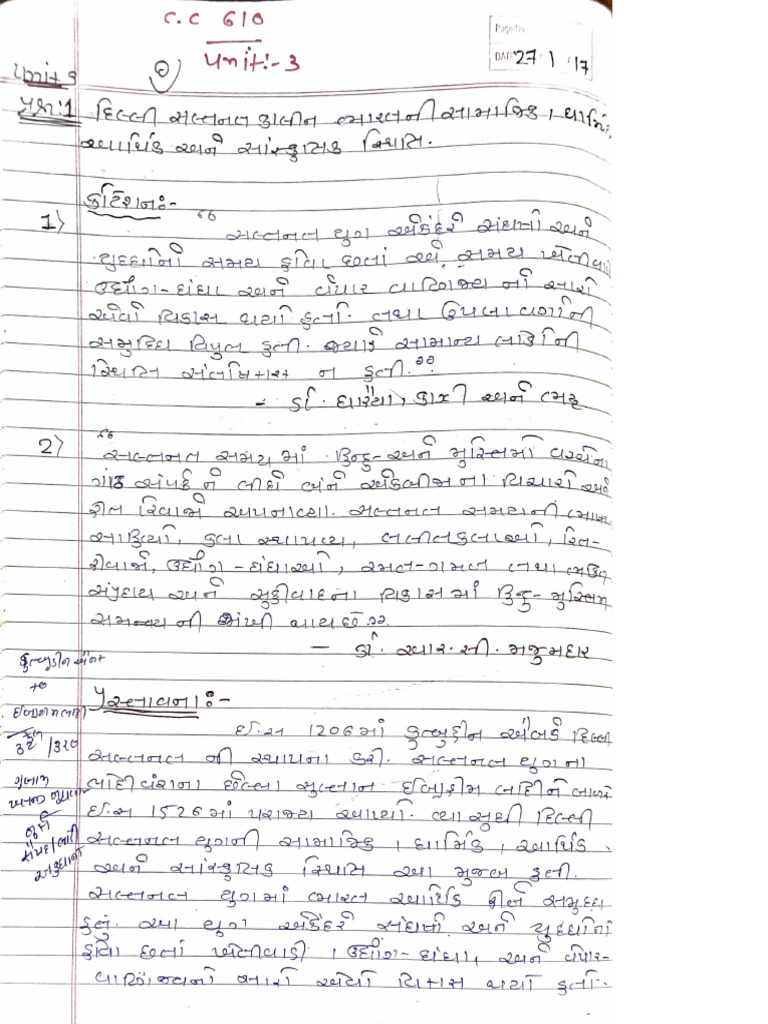 C.C 610
Unit:-3
Page No
DATE 27/1/17
Unit 3
પ્રશ્ન:1 દિલ્લી સલ્તનત કાલીન ભારતની સામાજિક, ધાર્મિક,
આર્થિક અને સાંસ્કૃતિક સ્થિતિ.
કોટેશન:-
1) “સલ્તનત યુગ એકંદરે સંઘર્ષો અને
યુદ્ધોનો સમય હોવા છતાં એ સમયે ખેતીવાડી
ઉદ્યોગ-ધંધા અને વેપાર વાણિજ્ય નો સારો
એવો વિકાસ થયો હતો. તથા ઉપલા વર્ગોની
સમૃદ્ધિ વિપુલ હતી. જ્યારે સામાન્ય લોકોની
સ્થિતિ સંતોષકારક ન હતી.”
- ડૉ. ધારૈયા, કાઝી અને ભટ્ટ
2) “સલ્તનત સમય માં હિન્દુ-અને મુસ્લિમો વચ્ચેના
ગાઢ સંપર્ક ને લીધે બંને એકબીજાના વિચારો અને
રીત રિવાજો અપનાવ્યા. સલ્તનત સમયની ભાષા
સાહિત્યો, કલા સ્થાપત્ય, લલીતકલાઓ, રિત-
રીવાજો, ઉદ્યોગ-ધંધાઓ, રમત-ગમત તથા ભક્તિ
સંપ્રદાય અને સુફીવાદના વિકાસમાં હિન્દુ-મુસ્લિમ
સમન્વય ની ઝાંખી થાય છે.”
- ડૉ. આર. સી. મજુમદાર
કુત્બુદ્દીન ઐબક
to
ઈબ્રાહિમ લોદી
કુલ
320
ગુલામ
પ્રસ્તાવના:-
ઈ.સ 1206માં કુત્બુદ્દીન ઐબકે દિલ્લી
સલ્તનત ની સ્થાપના કરી. સલ્તનત યુગના
લોદીવંશના છેલ્લા સુલ્તાન ઈબ્રાહીમ લોદીને બાબરે
ઈ.સ 1526માં પરાજય આપ્યો. ત્યા સુધી દિલ્લી
સલ્તનત યુગની સામાજિક, ધાર્મિક, આર્થિક
અને સાંસ્કૃતિક સ્થિતિ આ મુજબ હતી.
સલ્તનત યુગમાં ભારત આર્થિક રીતે સમૃદ્ધ
હતું. આ યુગ એકંદરે સંઘર્ષો અને યુદ્ધોનો
હોવા છતાં ખેતીવાડી, ઉદ્યોગ-ધંધા, અને વેપાર-
વાણિજ્યનો સારો એવો વિકાસ થયો હતો.